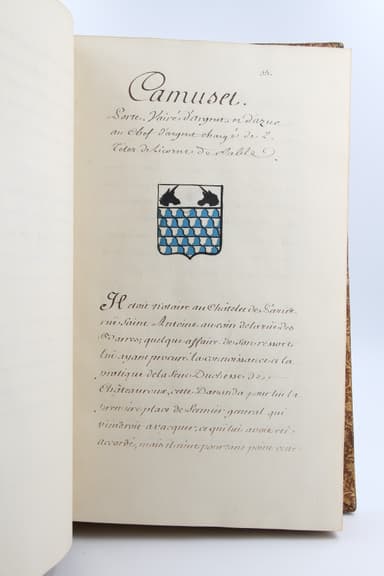 Camuset.
Porte Vairé d'argent et d'azur
au Chef d'argent chargé de 2.
Tetes de licorne de Sable
Il etoit Notaire au Châtelet de Paris
rüe Saint Antoine au coin de la rüe des
quelque affaire de son ressort
lui ayant procuré la connoissance et la
pratique de la feüe Duchesse de
Châteauroux, cette pour lui la
premiere place de Fermier general qui
viendroit a vacquer, ce qui lui avoit été
accordé, mais pourtant point cette